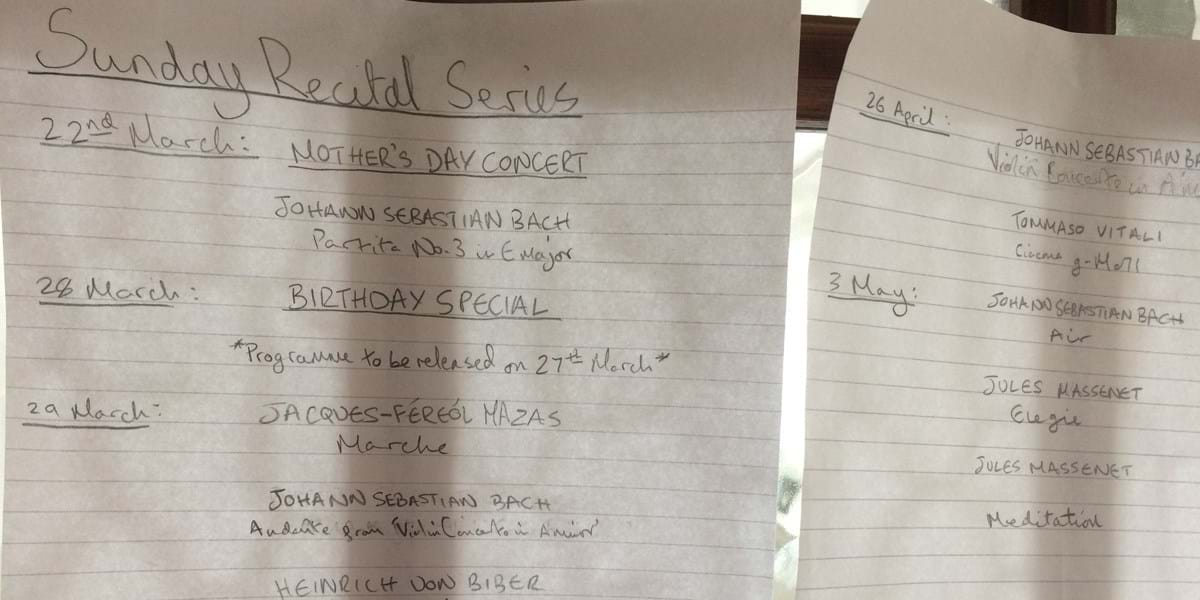 Sunday Recital Series
22nd March: MOTHER'S DAY CONCERT
JOHANN SEBASTIAN BACH
Partita No.3 in E Major
28 March: BIRTHDAY SPECIAL
*Programme to be released on 27th March*
29 March: JACQUES-FÉREÓL MAZAS
Marche
JOHANN SEBASTIAN BACH
Andante from 'Violin Concerto in A minor'
HEINRICH VON BIBER
26 April:
JOHANN SEBASTIAN BA
Violin Concerto in A
TOMMASO VITALI
g-Moll
3 May: JOHANN SEBASTIAN BACH
Air
JULES MASSENET
Elegie
JULES MASSENET
Meditation